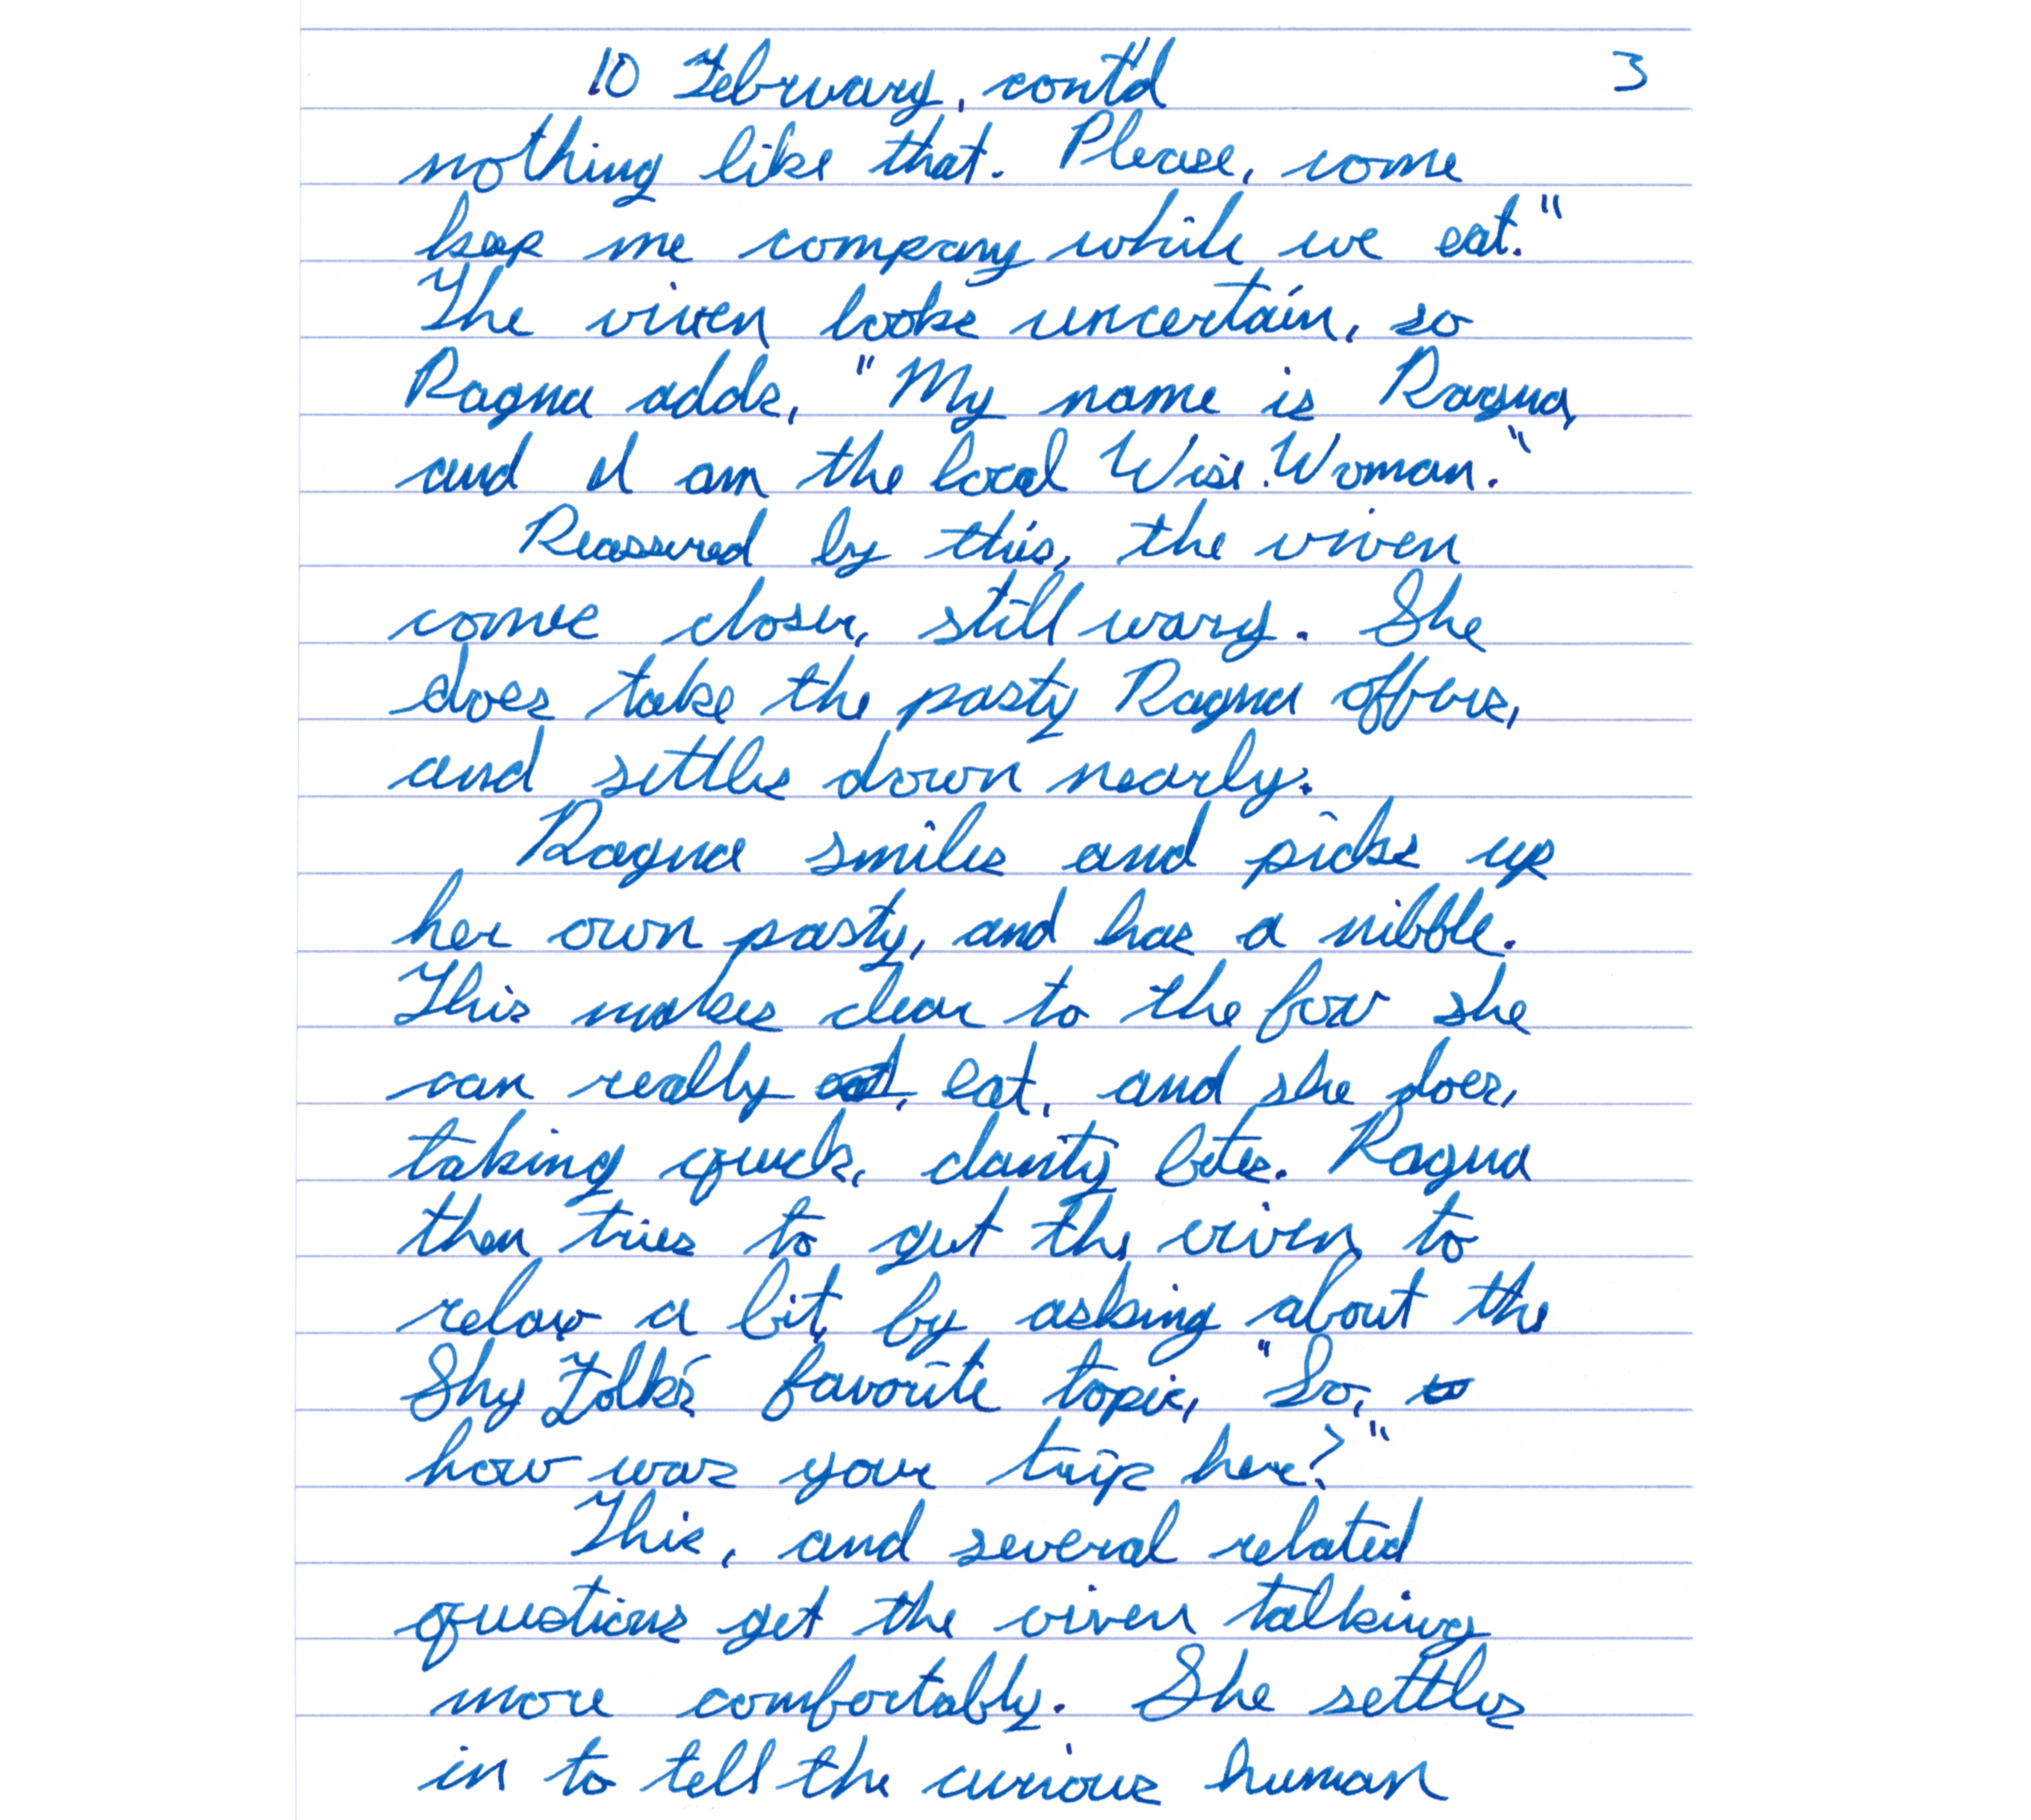 10 February, cont'd 3
nothing like that. Please, come
keep me company while we eat."
The vixen looks uncertain, so
Ragna adds, "My name is Ragna,
and I am the local Wise Woman."
Reassured by this, the vixen
comes closer, still wary. She
does take the pasty Ragna offers,
and settles down nearby.
Ragna smiles and picks up
her own pasty, and has a nibble.
This makes clear to the fox she
can really eat, eat, and she does,
taking quick, dainty bites. Ragna
then tries to get the vixen to
relax a bit by asking about the
Shy Folk's favorite topic, "So, so
how was your trip here?"
This, and several related
questions get the vixen talking
more comfortably. She settles
in to tell the curious human